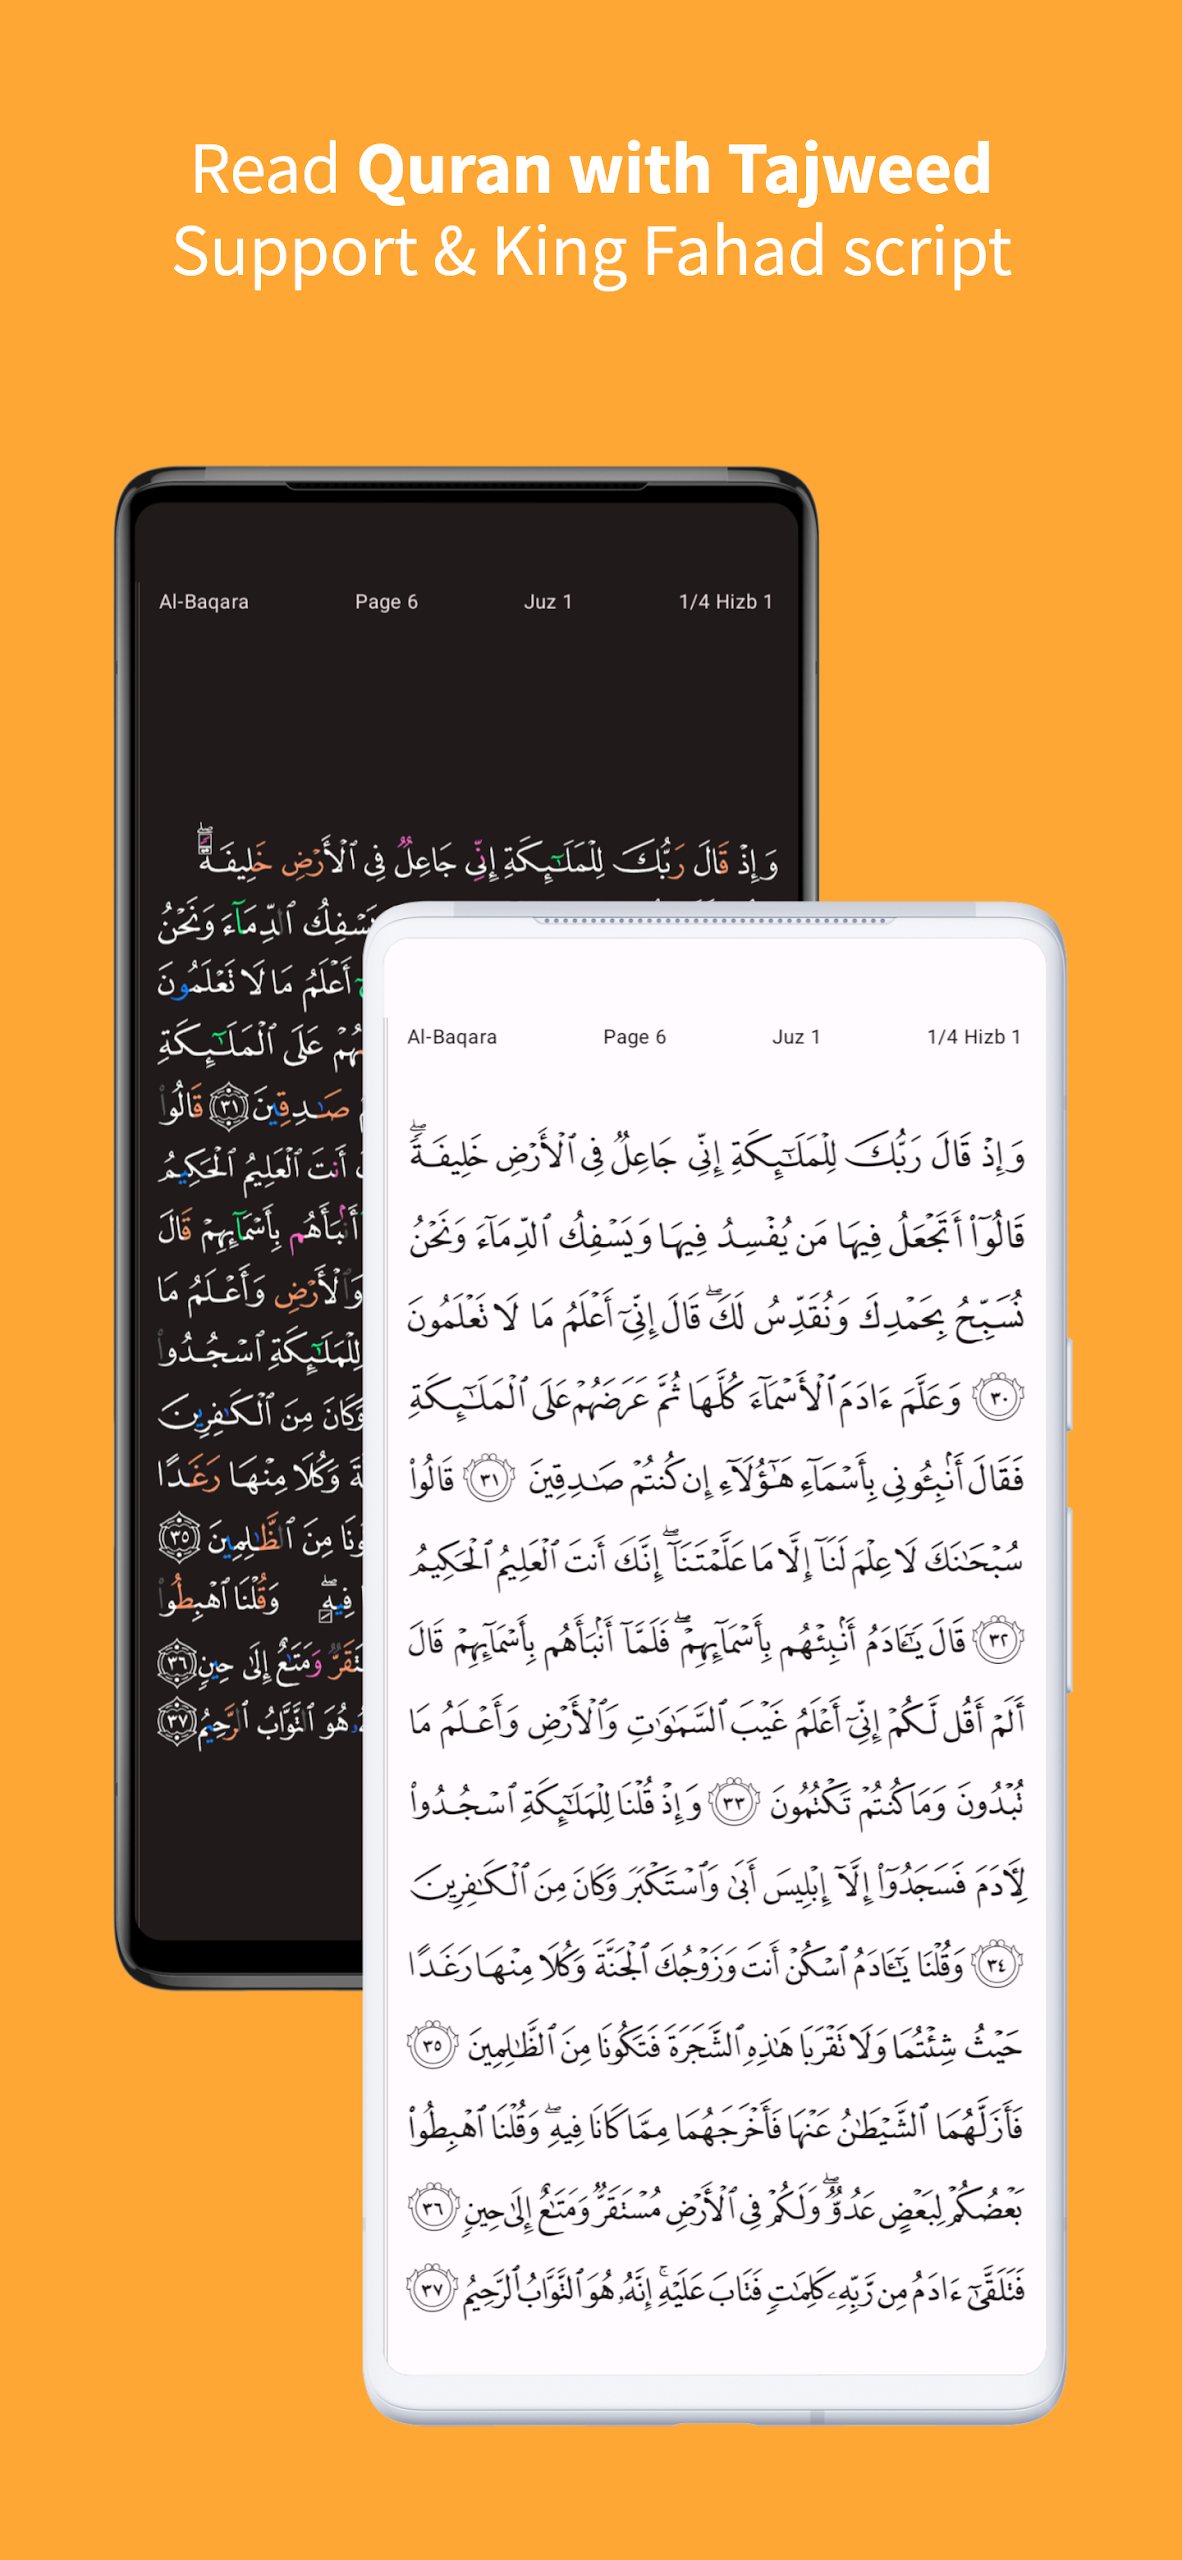 Read Quran with Tajweed
Support & King Fahad script
Al-Baqara Page 6 Juz 1 1/4 Hizb 1
وَإِذْ قَالَ رَبُّكَ لِلْمَلَٰٓئِكَةِ إِنِّى جَاعِلٌ فِى ٱلْأَرْضِ خَلِيفَةً ۖ
يَسْفِكُ ٱلدِّمَآءَ وَنَحْنُ
أَعْلَمُ مَا لَا تَعْلَمُونَ
عَلَى ٱلْمَلَٰٓئِكَةِ
صَٰدِقِينَ ٣١ قَالُوا۟
أَنتَ ٱلْعَلِيمُ ٱلْحَكِيمُ
أَنۢبَأَهُم بِأَسْمَآئِهِمْ قَالَ
وَٱلْأَرْضِ وَأَعْلَمُ مَا
لِلْمَلَٰٓئِكَةِ ٱسْجُدُوا۟
وَكَانَ مِنَ ٱلْكَٰفِرِينَ
وَكُلَا مِنْهَا رَغَدًا
مِنَ ٱلظَّٰلِمِينَ ٣٥
فِيهِ ۖ وَقُلْنَا ٱهْبِطُوا۟
وَمَتَٰعٌ إِلَىٰ حِينٍ ٣٦
هُوَ ٱلتَّوَّابُ ٱلرَّحِيمُ ٣٧
Al-Baqara Page 6 Juz 1 1/4 Hizb 1
وَإِذْ قَالَ رَبُّكَ لِلْمَلَٰٓئِكَةِ إِنِّى جَاعِلٌ فِى ٱلْأَرْضِ خَلِيفَةً ۖ
قَالُوٓا۟ أَتَجْعَلُ فِيهَا مَن يُفْسِدُ فِيهَا وَيَسْفِكُ ٱلدِّمَآءَ وَنَحْنُ
نُسَبِّحُ بِحَمْدِكَ وَنُقَدِّسُ لَكَ ۖ قَالَ إِنِّىٓ أَعْلَمُ مَا لَا تَعْلَمُونَ
٣٠ وَعَلَّمَ ءَادَمَ ٱلْأَسْمَآءَ كُلَّهَا ثُمَّ عَرَضَهُمْ عَلَى ٱلْمَلَٰٓئِكَةِ
فَقَالَ أَنۢبِـُٔونِى بِأَسْمَآءِ هَٰٓؤُلَآءِ إِن كُنتُمْ صَٰدِقِينَ ٣١ قَالُوا۟
سُبْحَٰنَكَ لَا عِلْمَ لَنَآ إِلَّا مَا عَلَّمْتَنَآ ۖ إِنَّكَ أَنتَ ٱلْعَلِيمُ ٱلْحَكِيمُ
٣٢ قَالَ يَٰٓـَٔادَمُ أَنۢبِئْهُم بِأَسْمَآئِهِمْ ۖ فَلَمَّآ أَنۢبَأَهُم بِأَسْمَآئِهِمْ قَالَ
أَلَمْ أَقُل لَّكُمْ إِنِّىٓ أَعْلَمُ غَيْبَ ٱلسَّمَٰوَٰتِ وَٱلْأَرْضِ وَأَعْلَمُ مَا
تُبْدُونَ وَمَا كُنتُمْ تَكْتُمُونَ ٣٣ وَإِذْ قُلْنَا لِلْمَلَٰٓئِكَةِ ٱسْجُدُوا۟
لِـَٔادَمَ فَسَجَدُوٓا۟ إِلَّآ إِبْلِيسَ أَبَىٰ وَٱسْتَكْبَرَ وَكَانَ مِنَ ٱلْكَٰفِرِينَ
٣٤ وَقُلْنَا يَٰٓـَٔادَمُ ٱسْكُنْ أَنتَ وَزَوْجُكَ ٱلْجَنَّةَ وَكُلَا مِنْهَا رَغَدًا
حَيْثُ شِئْتُمَا وَلَا تَقْرَبَا هَٰذِهِ ٱلشَّجَرَةَ فَتَكُونَا مِنَ ٱلظَّٰلِمِينَ ٣٥
فَأَزَلَّهُمَا ٱلشَّيْطَٰنُ عَنْهَا فَأَخْرَجَهُمَا مِمَّا كَانَا فِيهِ ۖ وَقُلْنَا ٱهْبِطُوا۟
بَعْضُكُمْ لِبَعْضٍ عَدُوٌّ ۖ وَلَكُمْ فِى ٱلْأَرْضِ مُسْتَقَرٌّ وَمَتَٰعٌ إِلَىٰ حِينٍ ٣٦
فَتَلَقَّىٰٓ ءَادَمُ مِن رَّبِّهِۦ كَلِمَٰتٍ فَتَابَ عَلَيْهِ ۚ إِنَّهُۥ هُوَ ٱلتَّوَّابُ ٱلرَّحِيمُ ٣٧